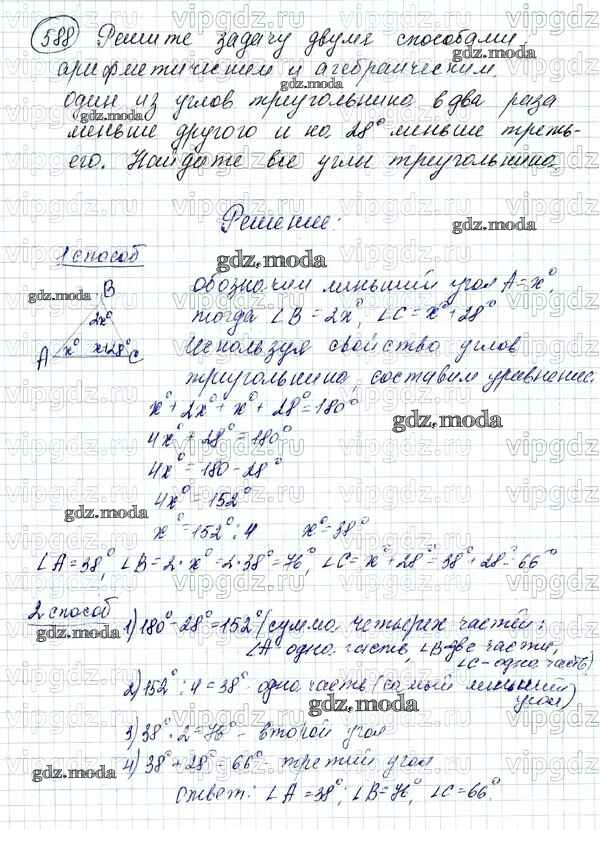 588 Решите задачу двумя способами,
арифметическим и агебраическим.
один из углов треугольника в два раза
меньше другого и на 28° меньше треть-
его. Найдите все углы треугольника.
Решение:
1 способ
gdz.moda
обозначим меньший угол A=x°,
B
2x°
A x° x+28° C
тогда ∠B=2x°, ∠C=x°+28°
Используя свойство углов
треугольника, составим уравнение.
x°+2x°+x°+28°=180°
4x°+28°=180°
4x°=180-28°
4x°=152°
x°=152°:4 x°=38°
∠A=38°, ∠B=2·x°=2·38°=76°, ∠C=x°+28°=38°+28°=66°
2 способ
1) 180°-28°=152° (сумма четырех частей:
∠A одна часть, ∠B-две части,
∠C-одна часть)
2) 152°:4=38° одна часть (самый меньший
угол)
3) 38°·2=76° - второй угол
4) 38°+28°=66° - третий угол
ответ: ∠A=38°, ∠B=76°, ∠C=66°
vipgdz.ru